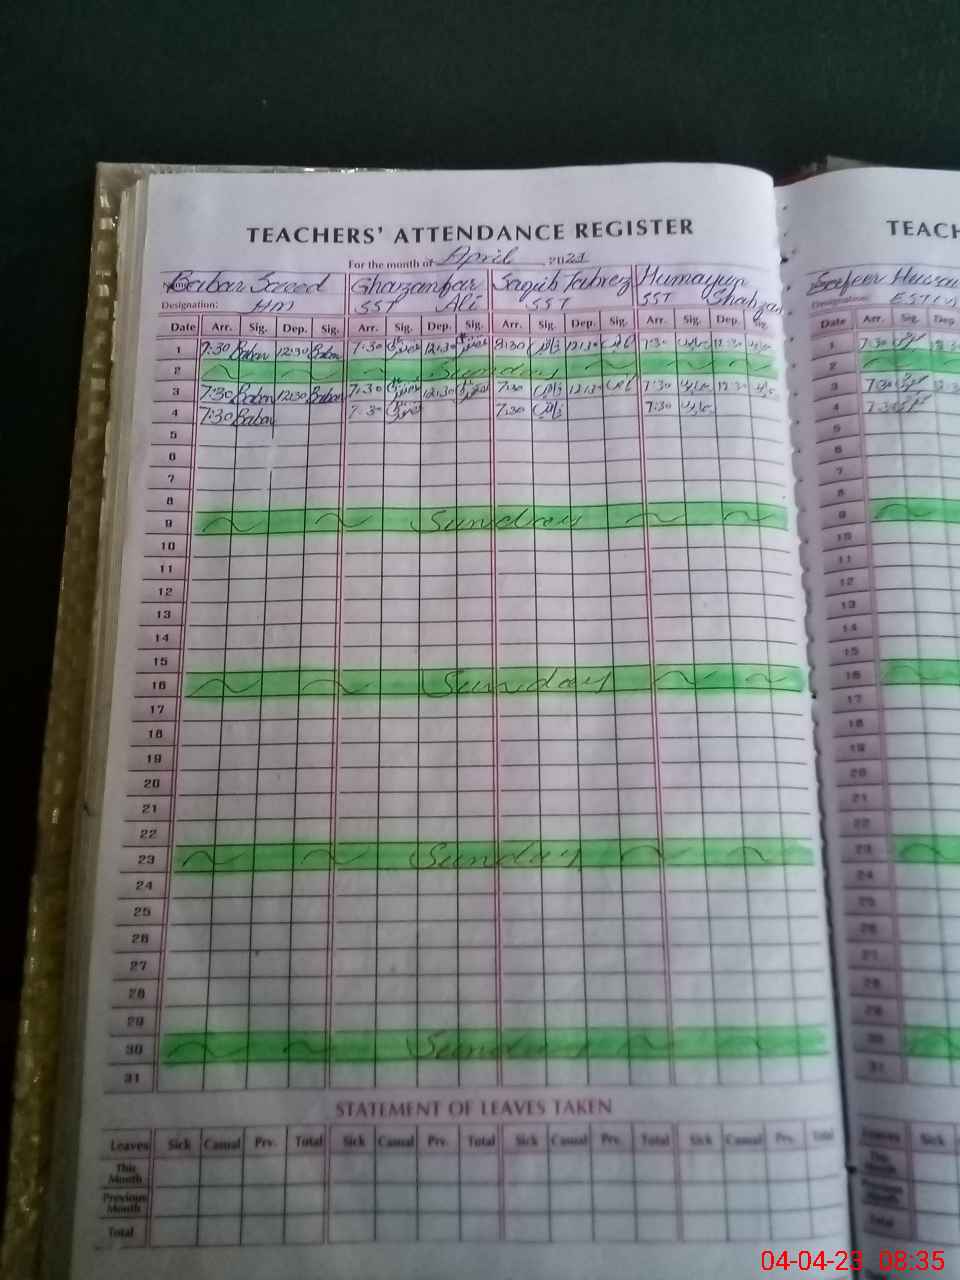 TEACHERS' ATTENDANCE REGISTER
For the month of April 2021
Babar Saeed Ghazanfar Ali Saqib Tabrez Humayun Shahzad
Designation: HM SST SST SST
Date Arr. Sig. Dep. Sig. Arr. Sig. Dep. Sig. Arr. Sig. Dep. Sig. Arr. Sig. Dep. Sig.
1 7:30 Babar 12:30 Babar 7:30 12:30 8:30 12:30 7:30 12:30
2 Sunday
3 7:30 Babar 12:30 Babar 7:30 12:30 7:30 12:30 7:30 12:30
4 7:30 Babar 7:30 7:30 7:30
5
6
7
8
9 Sunday
10
11
12
13
14
15
16 Sunday
17
18
19
20
21
22
23 Sunday
24
25
26
27
28
29
30 Sunday
31
STATEMENT OF LEAVES TAKEN
Leaves Sick Casual Prv. Total Sick Casual Prv. Total Sick Casual Prv. Total Sick Casual Prv. Total
This Month
Previous Month
Total
TEACH
Designation:
Date Arr. Sig. Dep.
1 7:30
2
3 7:30
4 7:30
5
6
7
8
9
10
11
12
13
14
15
16
17
18
19
20
21
22
23
24
25
26
27
28
29
30
31
Leaves Sick
This Month
Previous Month
Total
04-04-23 08:35